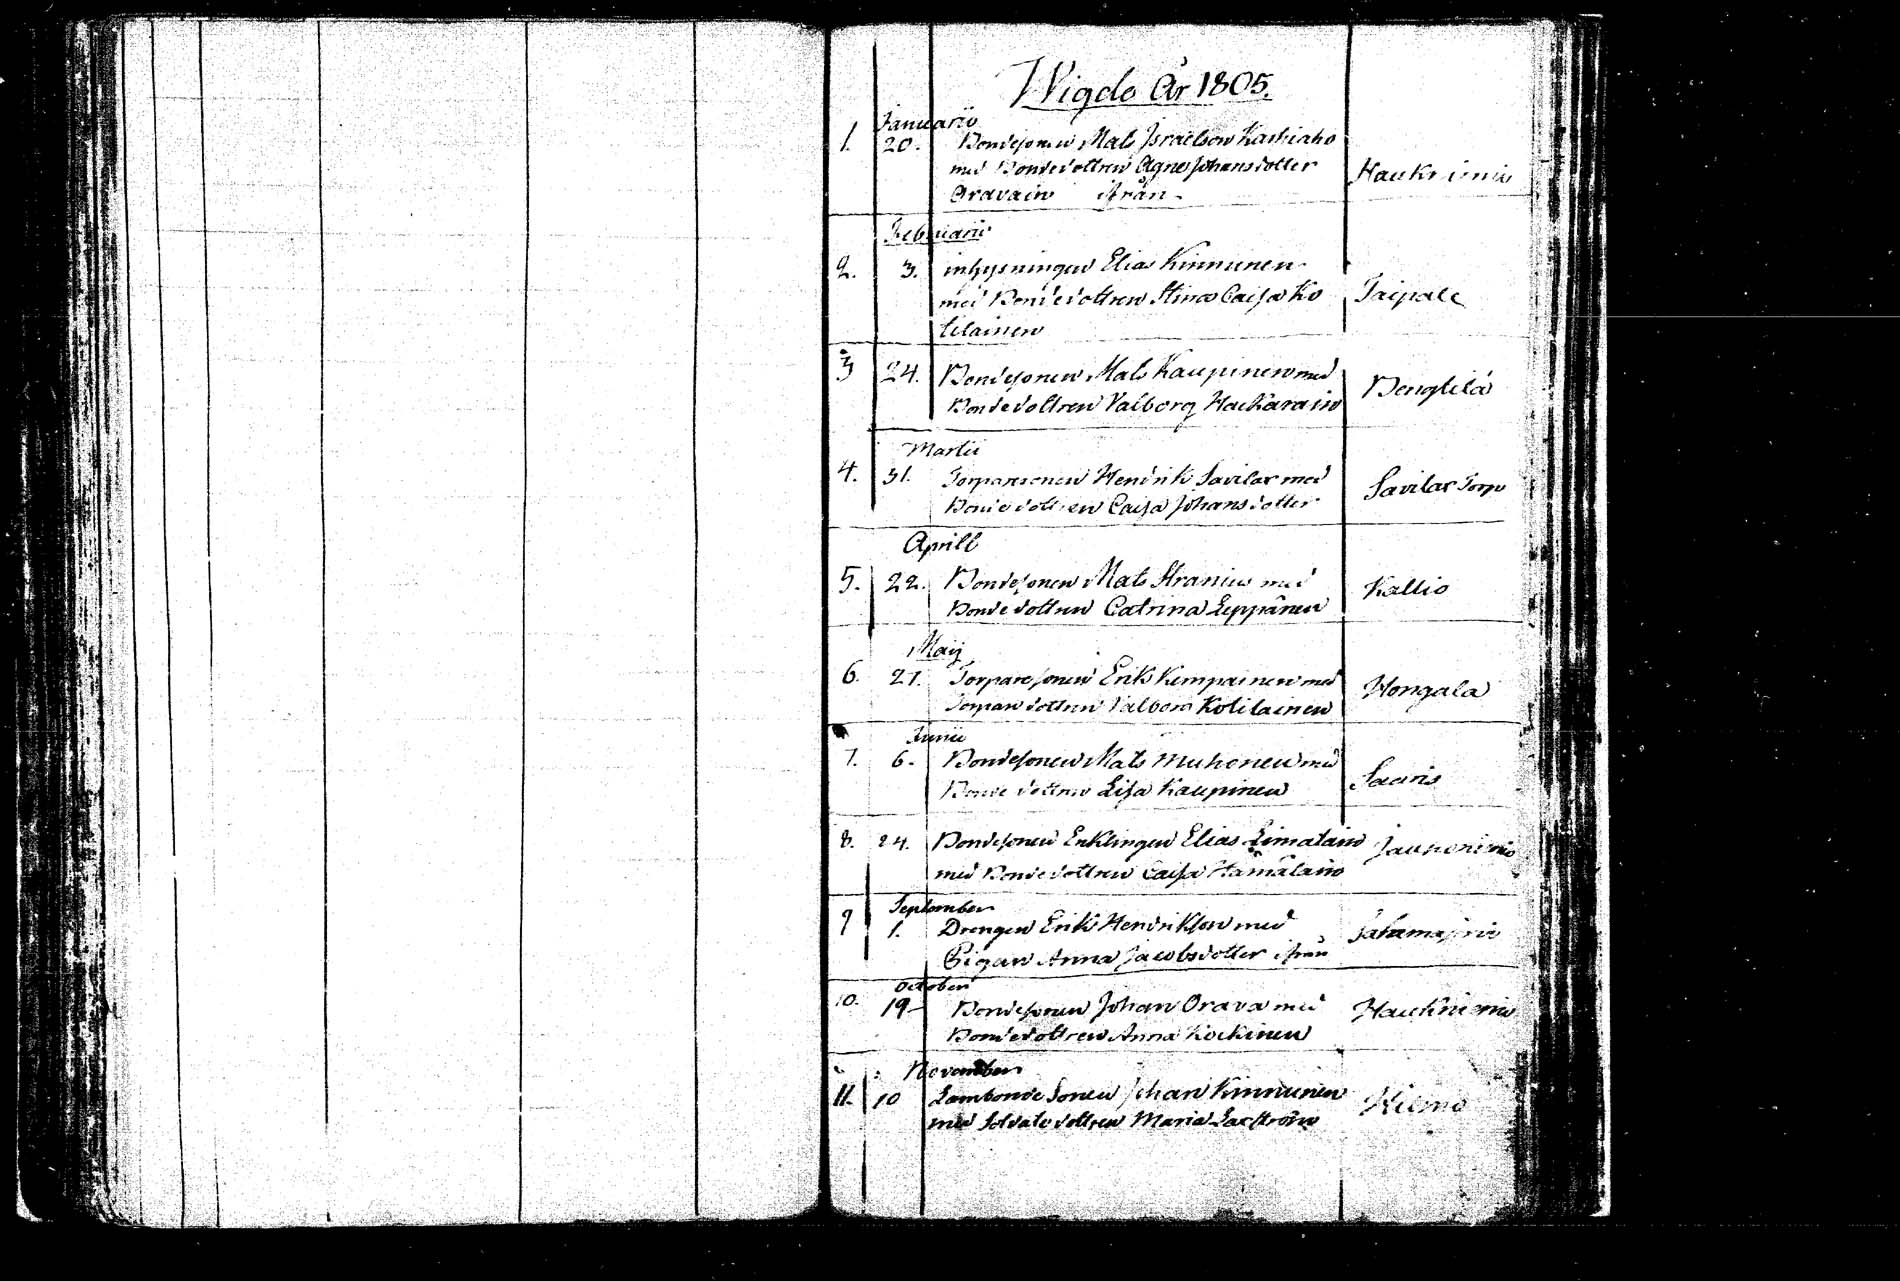 Wigde År 1805.
Januarii
1. 20. Bondesonen Mats Israelson Kaskiaho
med Bondedottren Agnes Johansdotter
Oravain ifrån Haukniemi
Februarii
2. 3. inhysningen Elias Kinnunen
med Bondedottren Stina Caisa Ko
tilainen Taipale
3 24. Bondesonen Mats Kaupinen med
Bondedottren Valborg Hackarain Bengtilä
Martii
4. 31. Torparesonen Hendrik Savilax med
Bondedottren Caisa Johansdotter Savilax Torp
Aprill
5. 22. Bondesonen Mats Stranius med
Bondedottren Catrina Leppänen Kallio
Maij
6. 27. Torparesonen Erik Kempainen med
Torparedottren Valborg Kotilainen Hongala
Junii
7. 6. Bondesonen Mats Muhonen med
Bondedottren Lisa Kaupinen Saaris
8. 24. Bondesonen Enklingen Elias Limatain
med Bondedottren Caisa Hämäläin Jauhoniemi
September
9 1. Drengen Erik Hendrikson med
Pigan Anna Jacobsdotter ifrån
October
10. 19 Bondesonen Johan Orava med
Bondedottren Anna Kockinen Haukniemi
November
11. 10 Lambonde Sonen Johan Kinnunen
med Soldatedottren Maria Laxström